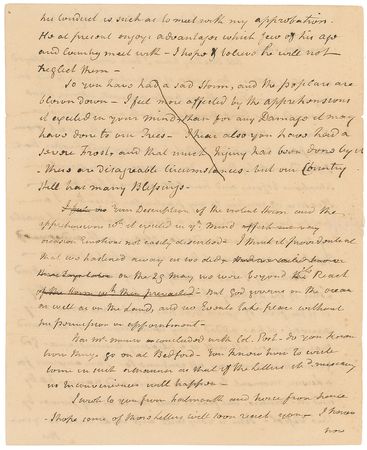 his Conduct is such as to meet with my approbation.
He at present enjoys advantages which few of his age
and Country meet with – I hope & believe he will not
neglect them –
So you have had a sad Storm, and the poplars are
blown down – I feel more affected by the apprehensions
it excited in your mind, than for any Damage it may
have done to our Trees – I hear also you have had a
severe Frost, and that much Injury has been done by it
– these are disagreable Circumstances – but our Country
still has many Blessings –
Your Description of the violent Storm and the
apprehensions wh. it excited in yr. Mind affect me
occasion Emotions not easily described – I think it providential
that we hastened away as we did,
on the 25 May we were beyond the Reach
of the Storm wh. then prevailed – But God governs on the ocean
as well as on the Land, and no Events take place without
his permission or appointment –
has concluded with Col. Post – do you know
how things go on at Bedford – You know how to write
to me in such a manner as that if the Letters shd. miscarry
no Inconveniences will happen –
I wrote to you from Falmouth and twice from hence
– I hope some of those Letters will soon reach you – I have
now